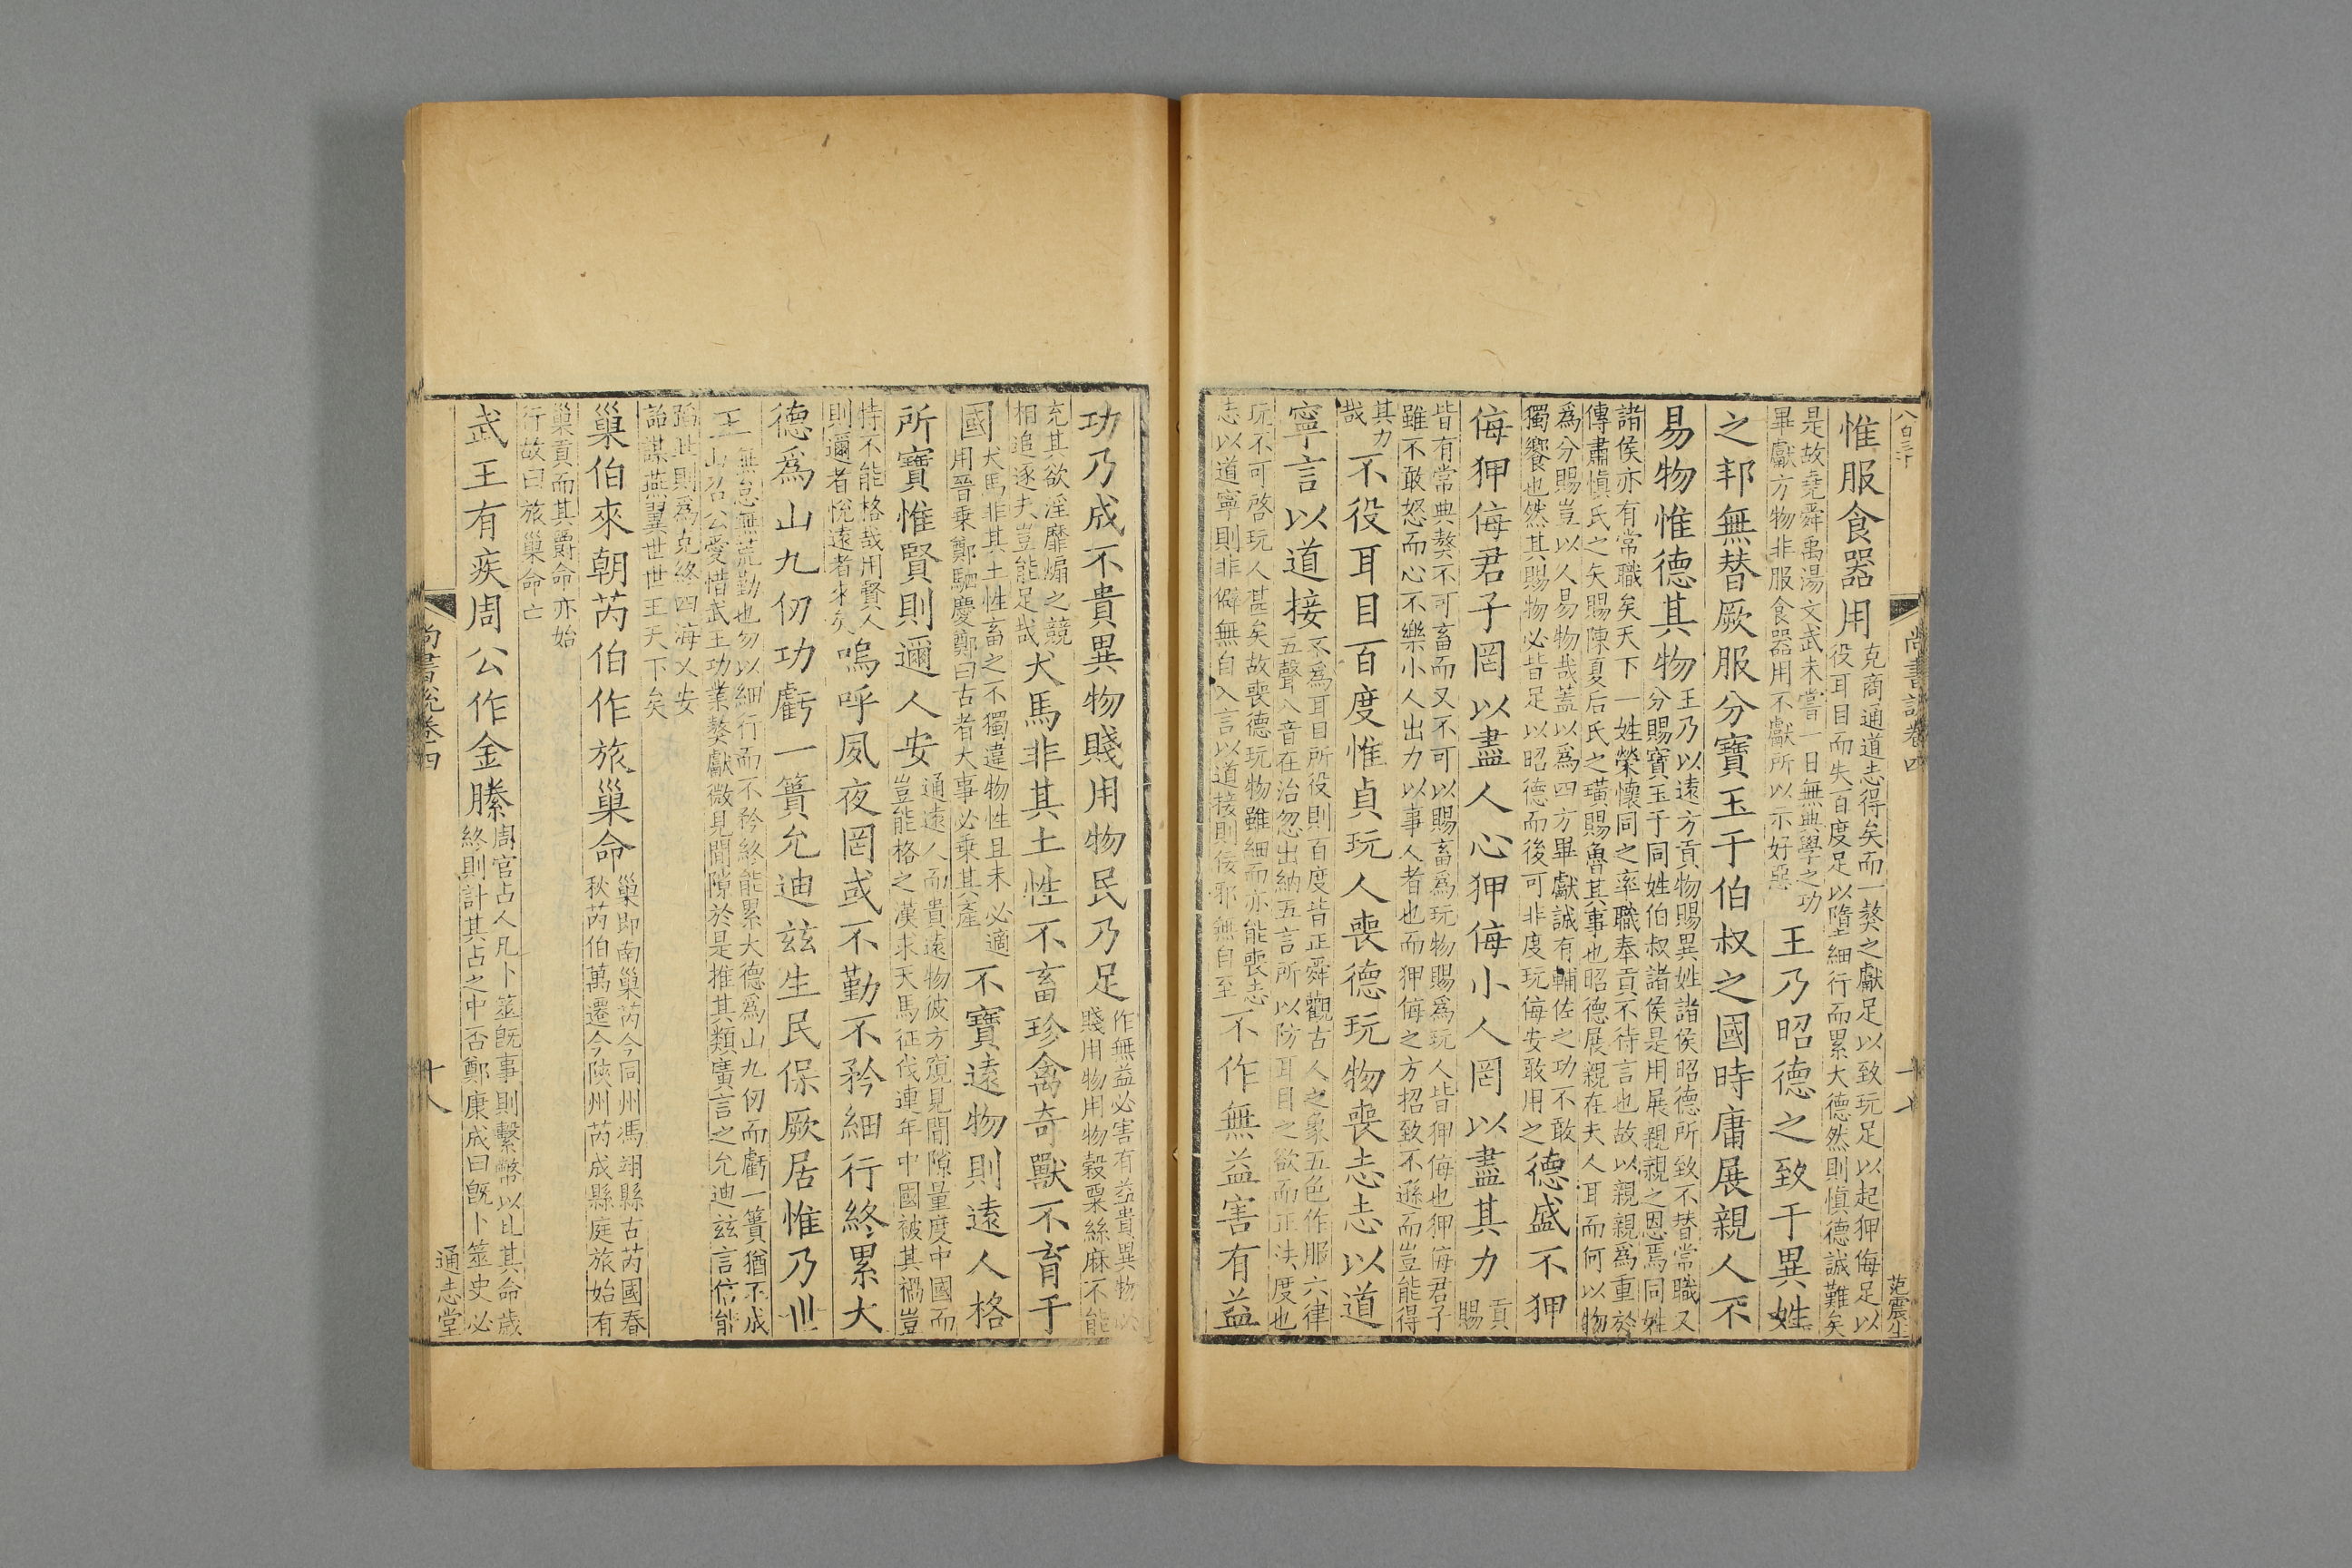 八百三十
尚書說卷四
十七
范震生
惟服食器用
克商通道志得矣而一獒之獻足以致玩足以起狎侮足以
役耳目而失百度足以隳細行而累大德然則慎德誠難矣
是故堯舜禹湯文武未嘗一日無典學之功
畢獻方物非服食器用不獻所以示好惡
王乃昭德之致于異姓
之邦無替厥服分寶玉于伯叔之國時庸展親人不
易物惟德其物
王乃以遠方貢物賜異姓諸侯昭德所致不替常職又
分賜寶玉于同姓伯叔諸侯是用展親親之恩焉同姓
諸侯亦有常職矣天下一姓榮懷同之率職奉貢不待言也故以親親爲重於
傳肅慎氏之矢賜陳夏后氏之璜賜魯其事也昭德展親在夫人耳而何以物
爲分賜豈以人易物哉蓋以爲四方畢獻誠有輔佐之功不敢
獨饗也然其賜物必皆足以昭德而後可非度玩侮安敢用之
德盛不狎
侮狎侮君子罔以盡人心狎侮小人罔以盡其力
貢
賜
皆有常典獒不可畜而又不可以賜畜爲玩物賜爲玩人皆狎侮也狎侮君子
雖不敢怒而心不樂小人出力以事人者也而狎侮之方招致不遜而豈能得
其力
哉
不役耳目百度惟貞玩人喪德玩物喪志志以道
寧言以道接
不爲耳目所役則百度皆正舜觀古人之象五色作服六律
五聲八音在治忽出納五言所以防耳目之欲而正法度也
玩不可啓玩人甚矣故喪德玩物雖細而亦能喪志
志以道寧則非僻無自入言以道接則佞邪無自至
不作無益害有益
功乃成不貴異物賤用物民乃足
作無益必害有益貴異物必
賤用物用物穀粟絲麻不能
充其欲淫靡煽之競
相追逐夫豈能足哉
犬馬非其土性不畜珍禽奇獸不育于
國
犬馬非其土性畜之不獨違物性且未必適
用晉乘鄭駟慶鄭曰古者大事必乘其產
不寶遠物則遠人格
所寶惟賢則邇人安
通遠人而貴遠物彼方窺見間隙量度中國而
豈能格之漢求天馬征伐連年中國被其禍豈
特不能格哉用賢人
則邇者悅遠者來矣
嗚呼夙夜罔或不勤不矜細行終累大
德爲山九仞功虧一簣允迪茲生民保厥居惟乃世
王
無怠無荒勤也勿以細行而不矜終能累大德爲山九仞而虧一簣猶不成
山召公愛惜武王功業獒獻微見間隙於是推其類廣言之允迪茲言信能
蹈此則爲克終四海乂安
詒謀燕翼世世王天下矣
巢伯來朝芮伯作旅巢命
巢即南巢芮今同州馮翊縣古芮國春
秋芮伯萬遷今陝州芮成縣庭旅始有
巢貢而其爵命亦始
行故曰旅巢命亡
武王有疾周公作金縢
周官占人凡卜筮既事則繫幣以比其命歲
終則計其占之中否鄭康成曰既卜筮史必
尚書說卷四
十八
通志堂